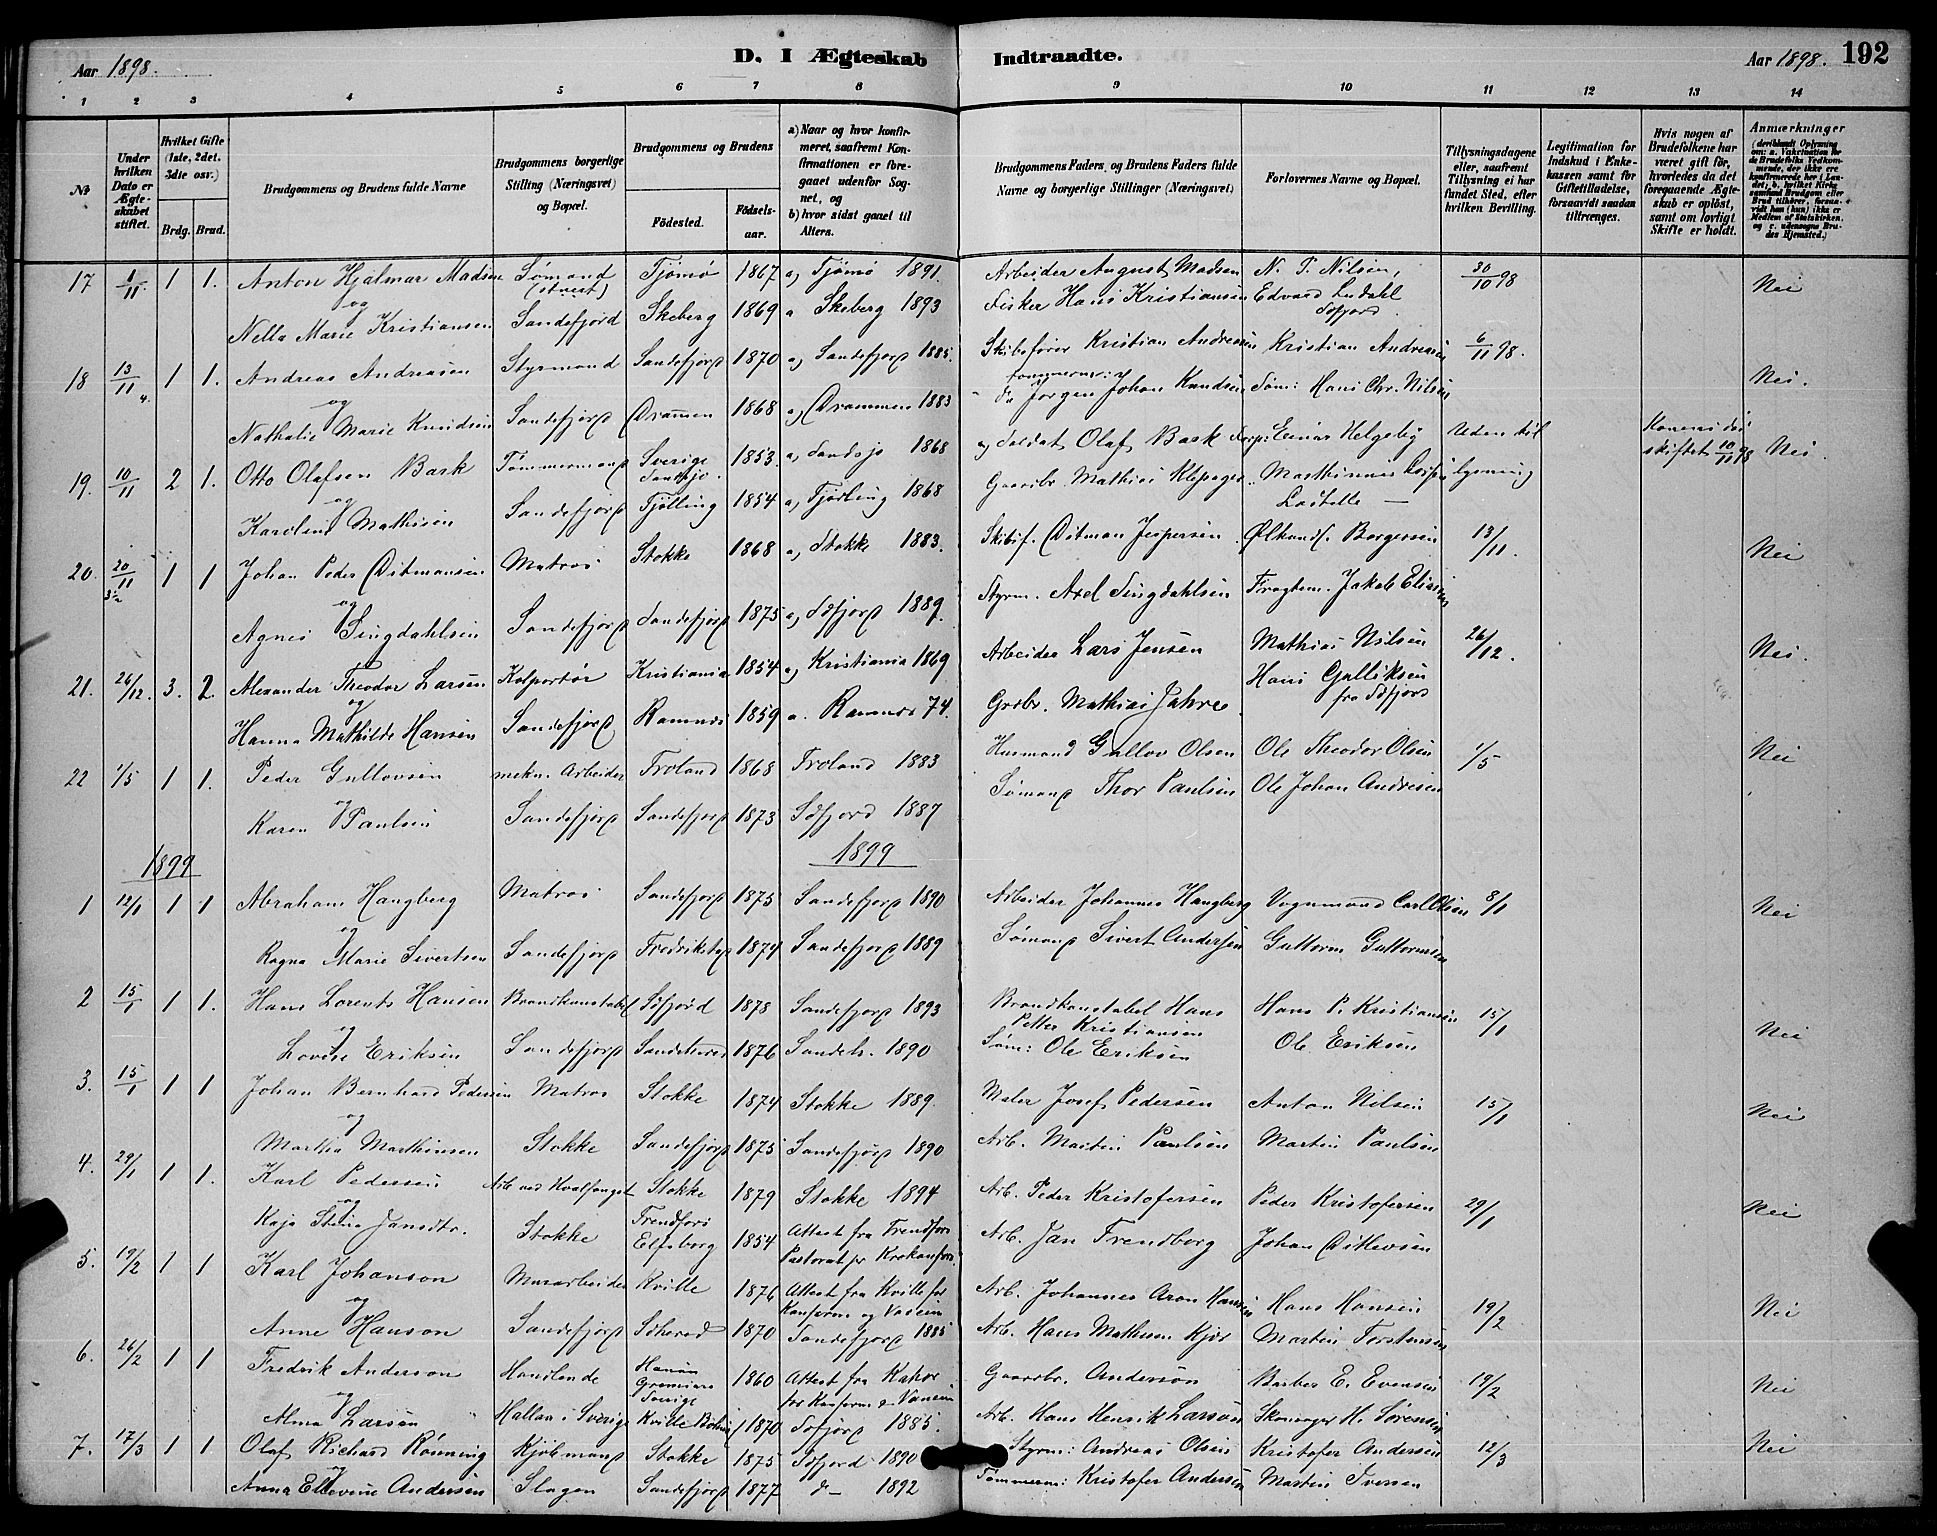 Aar 1898. D. I Ægteskab Indtraadte. Aar 1898. 192
1 2 3 4 5 6 7 8 9 10 11 12 13 14
No | Under hvilken Dato er Ægteskabet stiftet. | Hvilket Gifte (1ste, 2det. 3die osv.) Brdg. Brud. | Brudgommens og Brudens fulde Navne | Brudgommens borgerlige Stilling (Næringsvei) og Bopæl. | Brudgommens og Brudens Fødested. | Fødselsaar. | a) Naar og hvor konfirmeret, saafremt Konfirmationen er foregaaet udenfor Sognet, og b) hvor sidst gaaet til Alters. | Brudgommens Faders og Brudens Faders fulde Navne og borgerlige Stillinger (Næringsvei) | Forlovernes Navne og Bopæl. | Tillysningsdagene eller, saafremt Tillysning ei har fundet Sted, efter hvilken Bevilling. | Legitimation for Indskud i Enkekassen samt for Giftetilladelse, forsaavidt saadan tiltrænges. | Hvis nogen af Brudefolkene har været gift før, hvorledes da det foregaaende Ægteskab er opløst, samt om lovligt Skifte er holdt. | Anmærkninger
17 1/11 1 1. Anton Hjalmar Madsen Sømand Tjømø 1867 a) Tjømø 1891. Arbeider August Madsen N. P. Nilsen, 30/10 98 Nei
og
Nella Marie Kristiansen Sandefjord Skeberg 1869 a Skeberg 1893 Fisker Hans Kristiansen Edvard Lindahl
18 13/11 1 1. Andreas Andreasen Styrmand Sandefjord 1870 a) Sandefjord 1885. Skibsfører Kristian Andreasen Kristian Andreasen 6/11 98. Nei.
og
Nathalie Marie Knudsen Sandefjord Drammen 1868 a) Drammen 1883 Jørgen Johan Knudsen Hans Chr. Nilsen
19. 10/11 2 1. Otto Olafsen Bask Tømmermand Sverige 1853. a) 1868 a) Soldat Olaf Bask Einar Helgeby Uden tillysning skiftet 10/11 98 Nei.
og
Karoline Mathisen Sandefjord Tjølling 1854 a) Tjølling 1868 Gaardbr. Mathias
20. 20/11 1 1 Johan Peder Ditmansen Matros Stokke 1868 a) Stokke 1883. Skibsf. Ditman Jespersen Borgersen 13/11. Nei
og
Agnes Singdahlsen Sandefjord Sandefjord 1875 a) Sdfjord 1889. Styrm. Axel Singdahlsen Jakob Eliasen
21. 26/12. 3. 2. Alexander Theodor Larsen Kolportør Kristiania 1854 a) Kristiania 1869 Arbeider Lars Jensen Mathias Nilsen 26/12. Nei.
og
Hanna Mathilde Hansen Sandefjord Ramnes 1859 a. Ramnes 74. Grdbr. Mathias Jahre Hans Gulliksen
fra Sdfjord
22 1/5 1 1. Peder Gullovsen mekn. Arbeider Froland 1868 Froland 1883 Husmand Gullov Olsen Ole Theodor Olsen 1/5 Nei
og
Karen Paulsen Sandefjord Sandefjord 1873 Sdfjord 1887 Sømand Thor Paulsen Ole Johan Andresen
1899 1899
1 12/1 1 1 Abraham Haugberg Matros Sandefjord 1875 Sandefjord 1890 Arbeider Johannes Haugberg Vognmand Carl Olsen 8/1 Nei
og
Ragna Marie Sivertsen Sandefjord Fredrikstad 1874 Sandefjord 1889 Sømand Sivert Andersen Guttorm Guttormsen
2 15/1 1 1. Hans Lorents Hansen Brandkonstabel Sdfjord 1878 Sandefjord 1893 Brandkonstabel Hans Petter Kristiansen Hans P. Kristiansen 15/1 Nei
og
Lovise Eriksen Sandefjord Sandeherred 1876 Sandeh. 1890 Søm: Ole Eriksen Ole Eriksen
3. 15/1 1 1 Johan Bernhard Pedersen Matros Stokke 1874 Stokke 1889. Maler Josef Pedersen Anton Nilsen 15/1 Nei
og
Martha Marthinsen Stokke Sandefjord 1875 Sandefjord 1890 Arb. Martin Paulsen Martin Paulsen
4. 29/1 1 1. Karl Pedersen Arb ved Hvalfangst Stokke 1879 Stokke 1894 Arb. Peder Kristofersen Peder Kristofersen 29/1 Nei
og
Kaja Stina Jansdtr. Stokke Frendfors Elfsborg 1854 Attest fra Arb. Jan Frendberg Johan Ditlevsen
5. 19/2 1 1 Karl Johanson Murarbeider Kville 1876 Attest fra Kville for Konfirm og Vaccin Arb. Johannes Aron Hansen Hans Hansen 19/2 Nei
og
Anne Hanson Sandefjord Sdherred 1870 Sandefjord 1885 Arb. Hans Mathisen Kjær Martin Torstensen
6. 26/2 1 1 Fredrik Anderson Handlende Sverige 1860 Attest fra for Konfirm & Vaccin Gaardbr. Anderson Barber E. Evensen 19/2 Nei
og
Alma Larsen Hallan i Sverige Kville 1870 Sdfjord 1885. Arb. Hans Henrik Larsson Skomager H. Sørensen
7. 17/3 1 1. Olaf Richard Rønning Kjøbmand Stokke 1875 Sdfjord 1890 Styrm: Andreas Olsen Kristofer Andersen 12/3 Nei
og
Anna Ellevine Andersen Slagen Sandefjord 1877 d- 1892 Tømmerm: Kristofer Andersen Martin Iversen